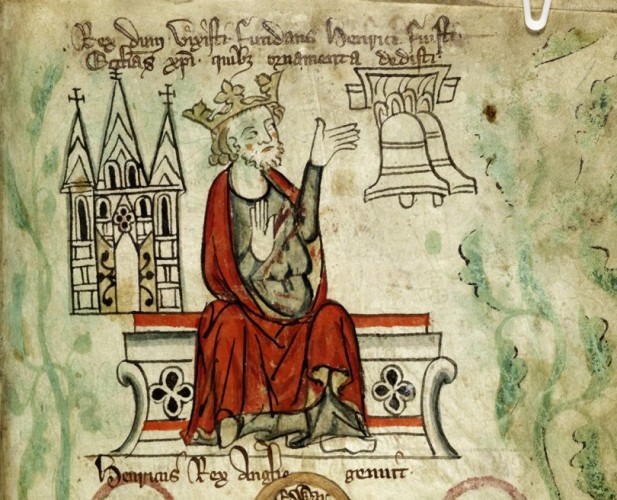 Rex dum vixisti fundans Henrice fuisti
Ecclias xpi quibz ornamenta dedisti
Henricus Rex Anglie genuit
Edwar